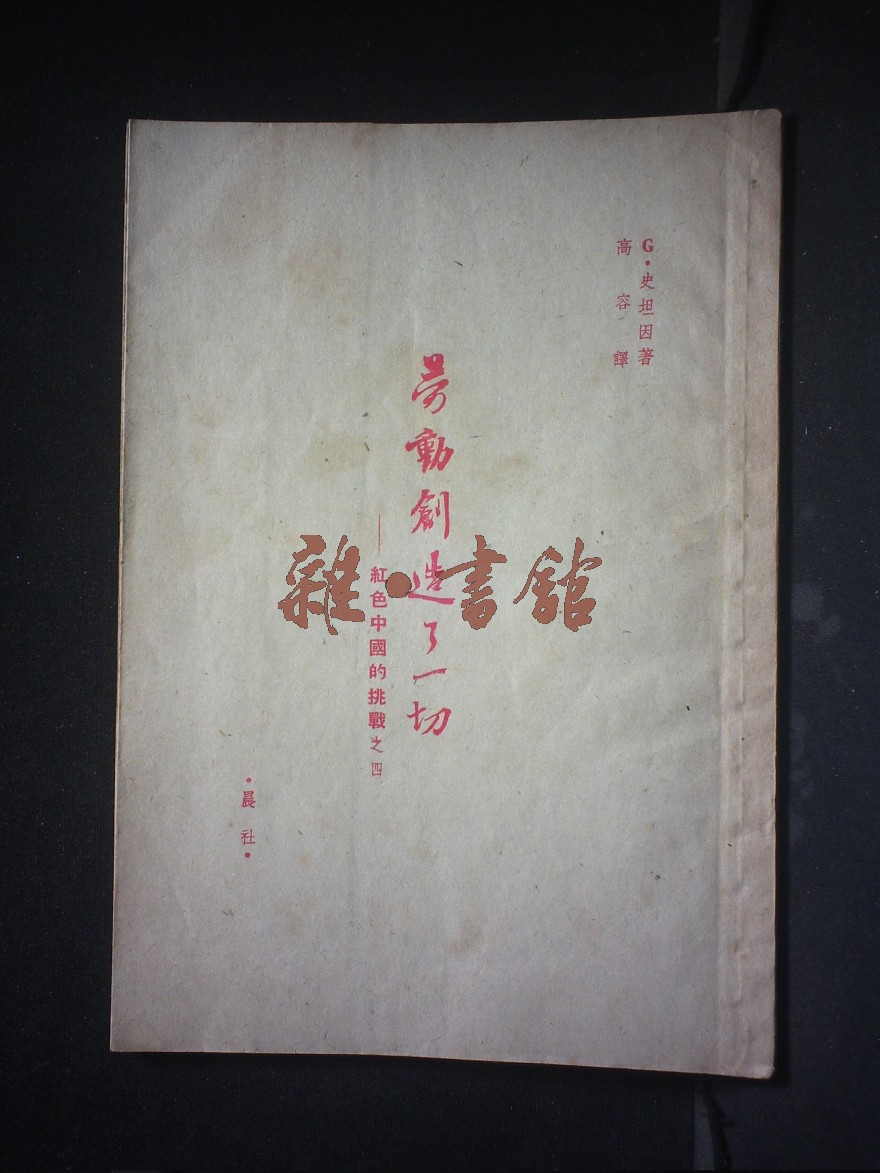 G·史坦因著
高容譯
勞動創造了一切
——紅色中國的挑戰之四
·晨社·
雜·書館